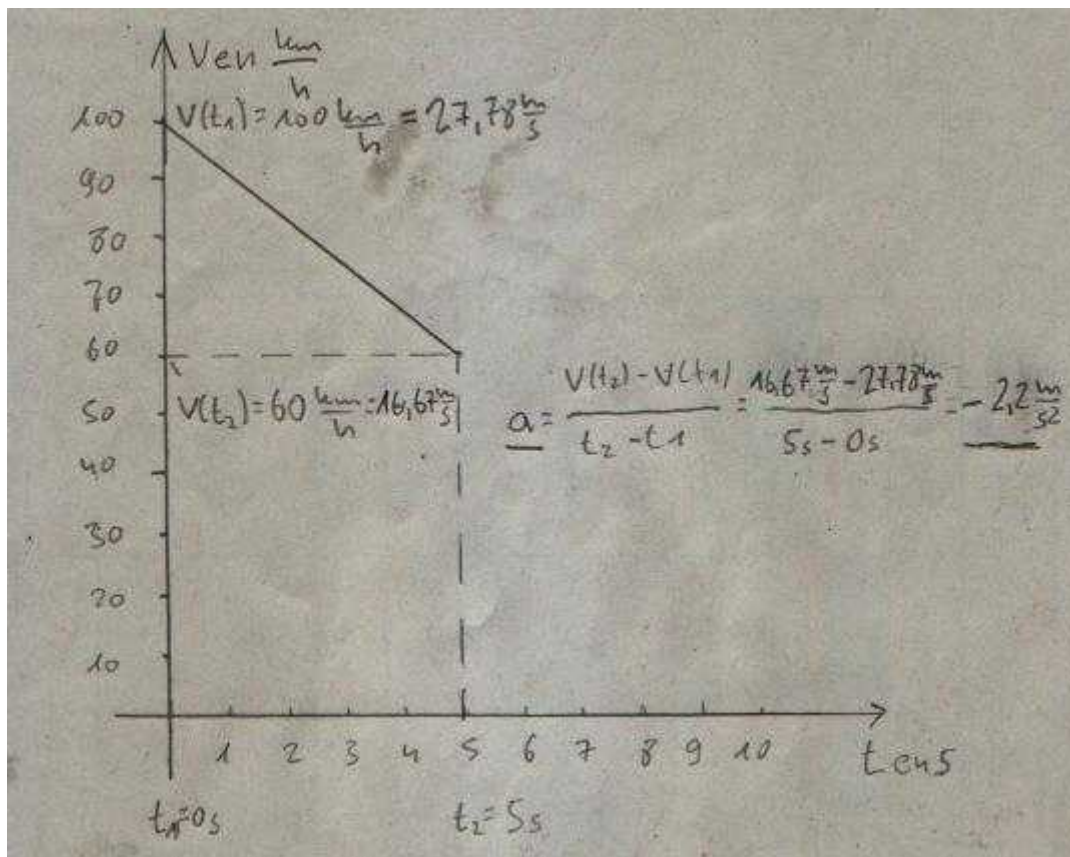 V en km/h
V(t1) = 100 km/h = 27,78 m/s
100
90
80
70
60
V(t2) = 60 km/h = 16,67 m/s
50
a = (V(t2) - V(t1)) / (t2 - t1) = (16,67 m/s - 27,78 m/s) / (5s - 0s) = -2,2 m/s2
40
30
20
10
1 2 3 4 5 6 7 8 9 10
t en s
t1=0s t2=5s